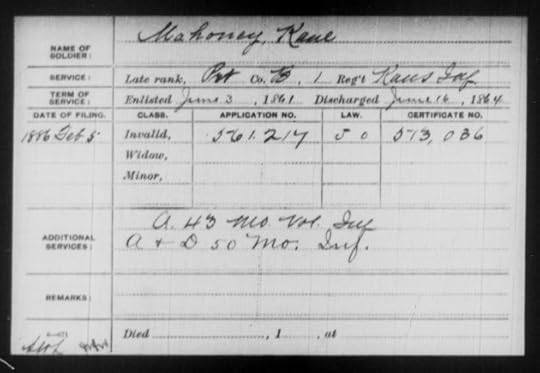 NAME OF SOLDIER: Mahoney, Kane
SERVICE: Late rank, Pvt Co. B, 1 Reg't Kans Inf
TERM OF SERVICE: Enlisted June 3, 1861 Discharged June 16, 1864
DATE OF FILING. CLASS. APPLICATION NO. LAW. CERTIFICATE NO.
1886 Feb. 5 Invalid, 561.217 50 573,036
Widow,
Minor,
ADDITIONAL SERVICES: A. 43 Mo. Vol. Inf
A & D 50 Mo. Inf.
REMARKS:
Died , 1 , at